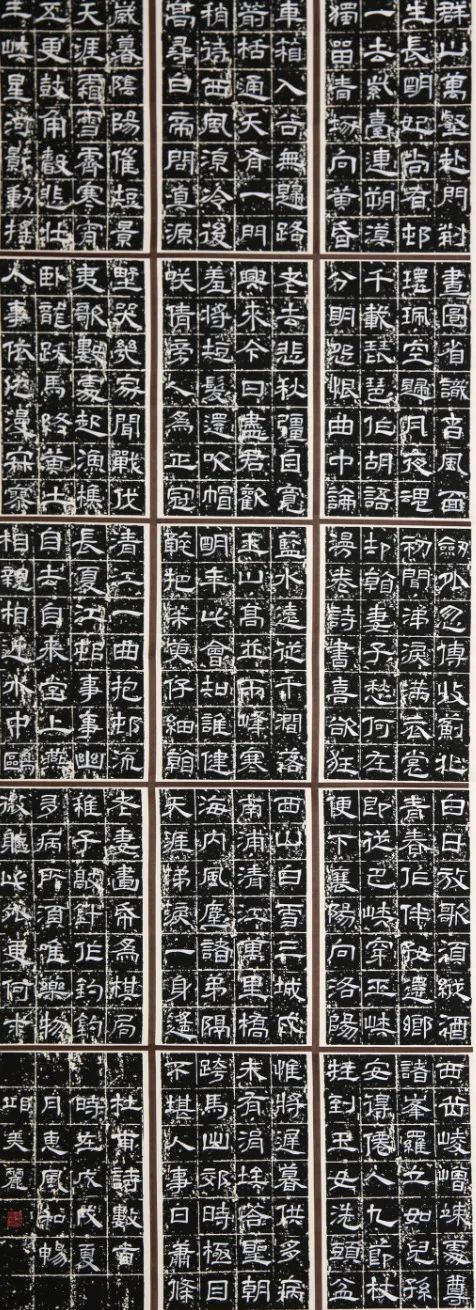 群山萬壑赴門荊
生長明妃尚有邨
一去紫臺連朔漠
獨留青塚向黃昏
畫圖省識春風面
環珮空歸月夜魂
千載琵琶作胡語
分明怨恨曲中論
劍外忽傳收薊北
初聞涕淚滿衣裳
却看妻子愁何在
漫卷詩書喜欲狂
白日放歌須縱酒
青春作伴好還鄉
即從巴峽穿巫峽
便下襄陽向洛陽
西岳崚嶒竦處尊
諸峯羅立如兒孫
安得僊人九節杖
拄到玉女洗頭盆
車箱入谷無歸路
箭栝通天有一門
稍待西風涼冷後
高尋白帝問真源
老去悲秋彊自寬
興來今日盡君歡
羞將短髮還吹帽
咲倩旁人為正冠
藍水遠從千澗落
玉山高並兩峰寒
明年此會知誰健
醉把茱萸仔細看
西山白雪三城戍
南浦清江萬里橋
海內風塵諸弟隔
天涯涕淚一身遙
惟將遲暮供多病
未有涓埃答聖朝
跨馬出郊時極目
不堪人事日蕭條
歲暮陰陽催短景
天涯霜雪霽寒宵
五更鼓角聲悲壯
三峽星河影動搖
野哭幾家聞戰伐
夷歌數處起漁樵
臥龍躍馬終黃土
人事依依漫寂寥
清江一曲抱邨流
長夏江邨事事幽
自去自來堂上燕
相親相近水中鷗
老妻畫紙為棋局
稚子敲針作釣鉤
多病所須唯藥物
微軀此外更何求
杜甫詩數首
時在戊戌夏
月惠風和暢
邱美麗